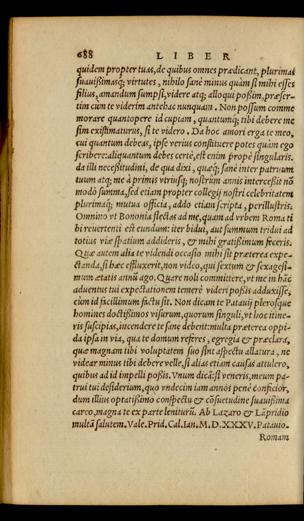 688 LIBER
quidem propter tuas, de quibus omnes prædicant, plurimas
suauißimasq; virtutes, nihilo sanè minus quàm si mihi esses
filius, amandum sumpsi, videre atq; alloqui poßim, præser-
tim cùm te viderim antehac nunquam. Non possum comme
morare quantopere id cupiam, quantumq; tibi debere me
sim existimaturus, si te videro. Da hoc amori erga te meo,
cui quantum debeas, ipse verius constituere potes quàm ego
scribere: aliquantum debes certè, est enim propè singularis.
da illi neceßitudini, de qua dixi, quæq; sanè inter patruum
tuum atq; me à primis vtriusq; nostrum annis interceßit nō
modò summa, sed etiam propter collegij nostri celebritatem
plurimaq; mutua officia, addo etiam scripta, perillustris.
Omnino vt Bononia flectas ad me, quam ad vrbem Roma ti
bi reuertenti est eundum: iter bidui, aut summum tridui ad
totius viæ spatium addideris, & mihi gratißimum feceris.
Quæ autem alia te videndi occasio mihi sit præterea expe-
ctanda, si hæc effluxerit, non video, qui sextum & sexagesi-
mum ætatis annū ago. Quare noli committere, vt me in hāc
aduentus tui expectationem temerè videri poßis adduxisse,
cùm id facillimum factu sit. Non dicam te Patauij plerosque
homines doctißimos visurum, quorum singuli, vt hoc itine-
ris suscipias, incendere te sanè debent: multa præterea oppi-
da ipsa in via, qua te domum referes, egregia & præclara,
quæ magnam tibi voluptatem suo sint aspectu allatura, ne
videar minus tibi debere velle, si alias etiam causas attulero,
quibus ad id impelli poßis. Vnum dicā: si veneris, meum pa-
trui tui desiderium, quo vndecim iam annos penè conficior,
dum illius optatißimo conspectu & cōsuetudine suauißima
careo, magna te ex parte leniturū. Ab Lazaro & Lāpridio
multā salutem. Vale. Prid. Cal. Ian. M. D. XXXV. Patauio.
Romam